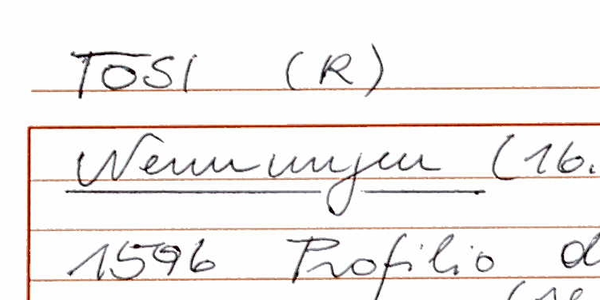 TOSI (R)
Nennungen (16.
1596 Profilio d